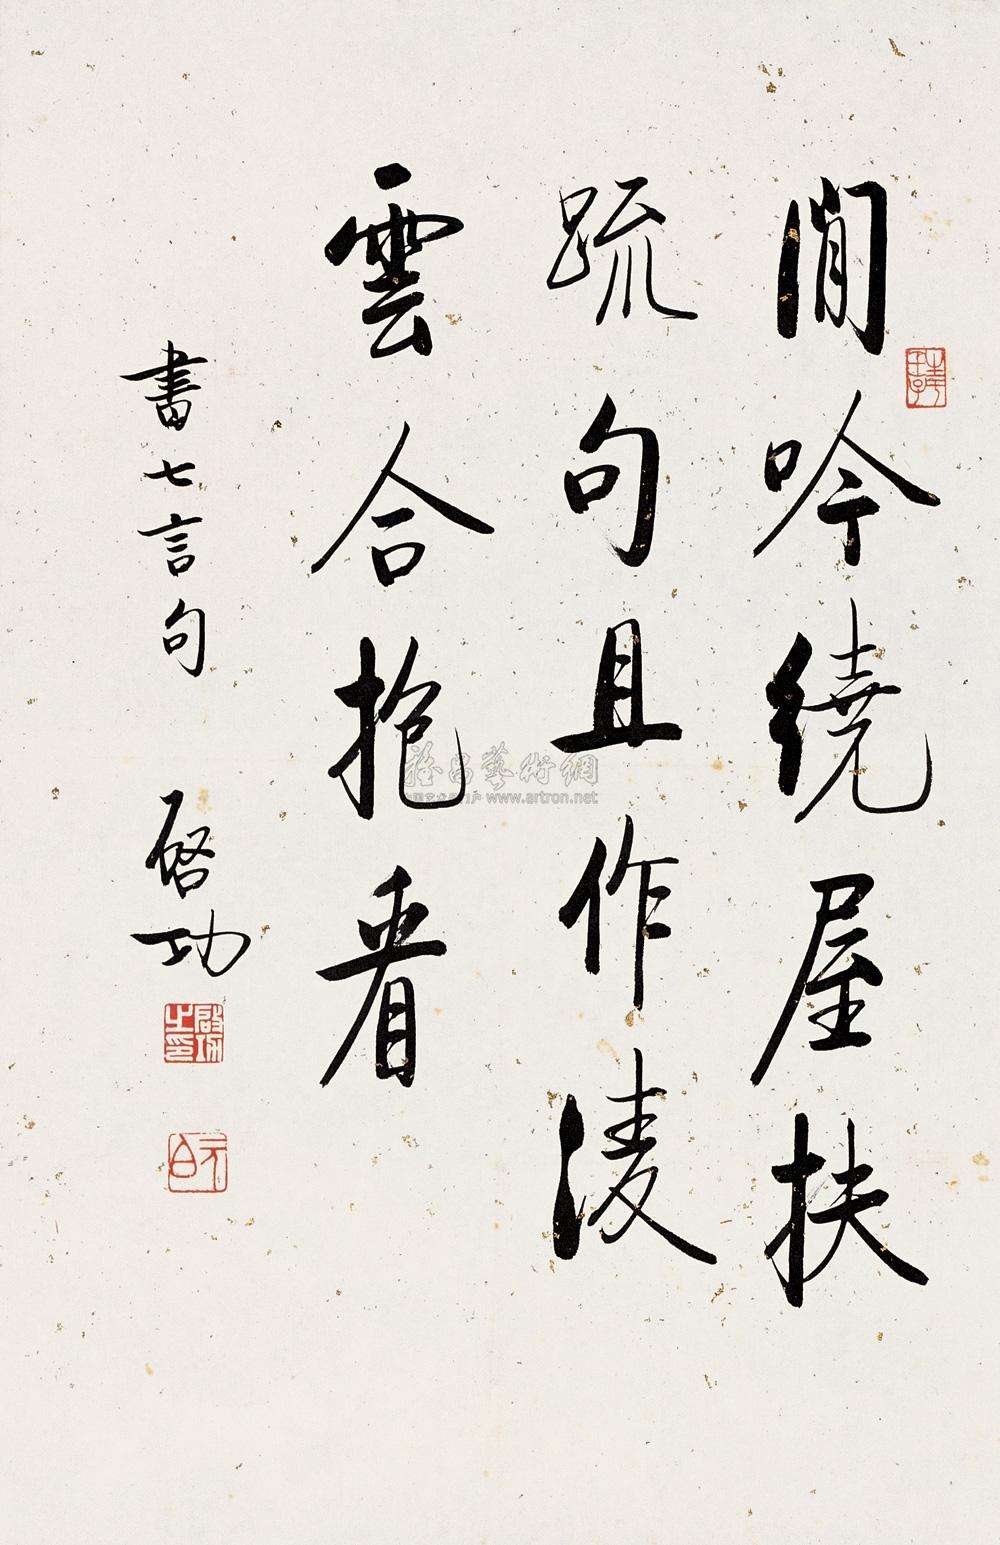 閒吟繞屋扶
疏句且作凌
雲合抱看
書七言句
啓功
啟功之印
元白
www.artron.net